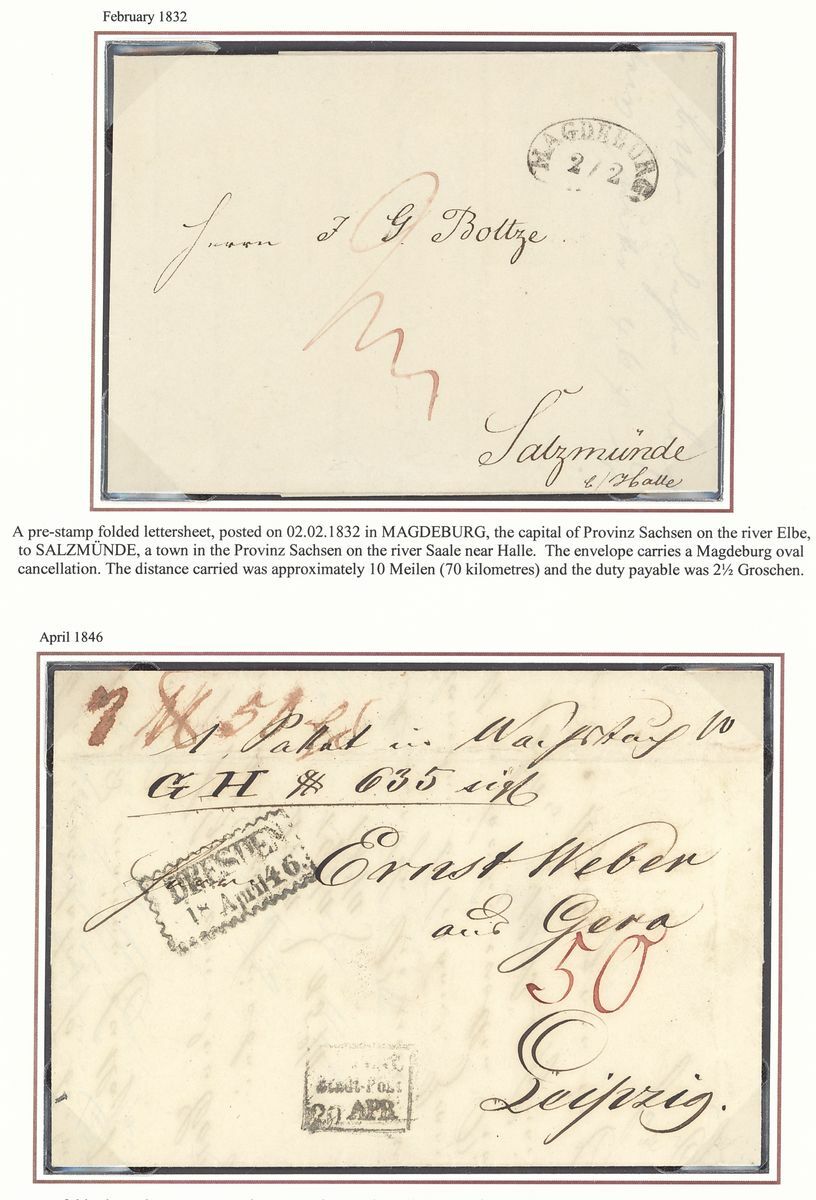 February 1832
MAGDEBURG
2/2
Herrn J G Boltze.
Salzmünde
b/Halle
A pre-stamp folded lettersheet, posted on 02.02.1832 in MAGDEBURG, the capital of Provinz Sachsen on the river Elbe,
to SALZMÜNDE, a town in the Provinz Sachsen on the river Saale near Halle. The envelope carries a Magdeburg oval
cancellation. The distance carried was approximately 10 Meilen (70 kilometres) and the duty payable was 2½ Groschen.
April 1846
7
1 Paket in Wachstuch
G H # 635 sigt
DRESDEN
18 April 46.
Herrn Ernst Weber
aus Gera
50
Stadt-Post
20 APR
Leipzig.